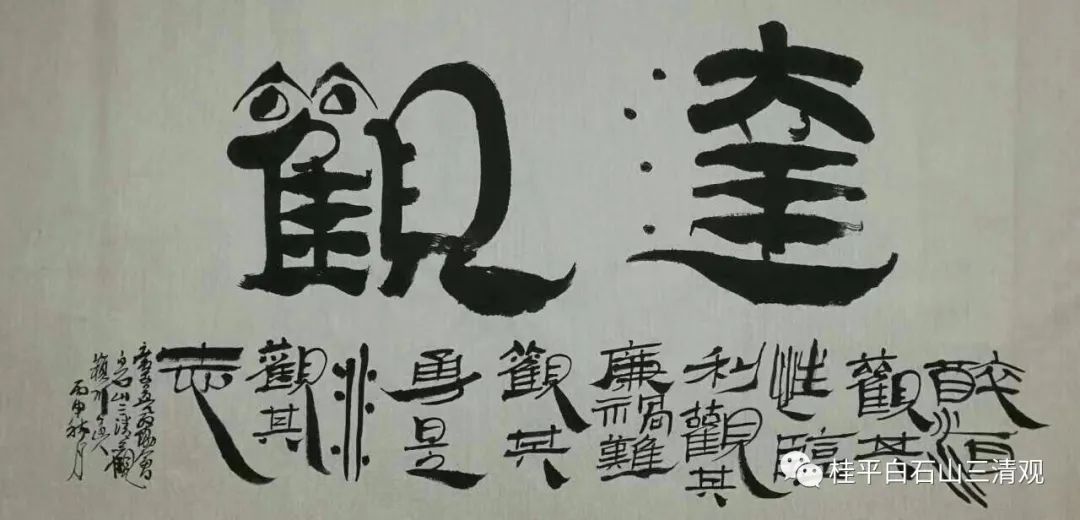 達觀
醉酒
觀其
性臨
利觀其
廉禍難
觀其
勇是
非
觀其
志
白石山三清觀
丙申秋月
桂平白石山三清观